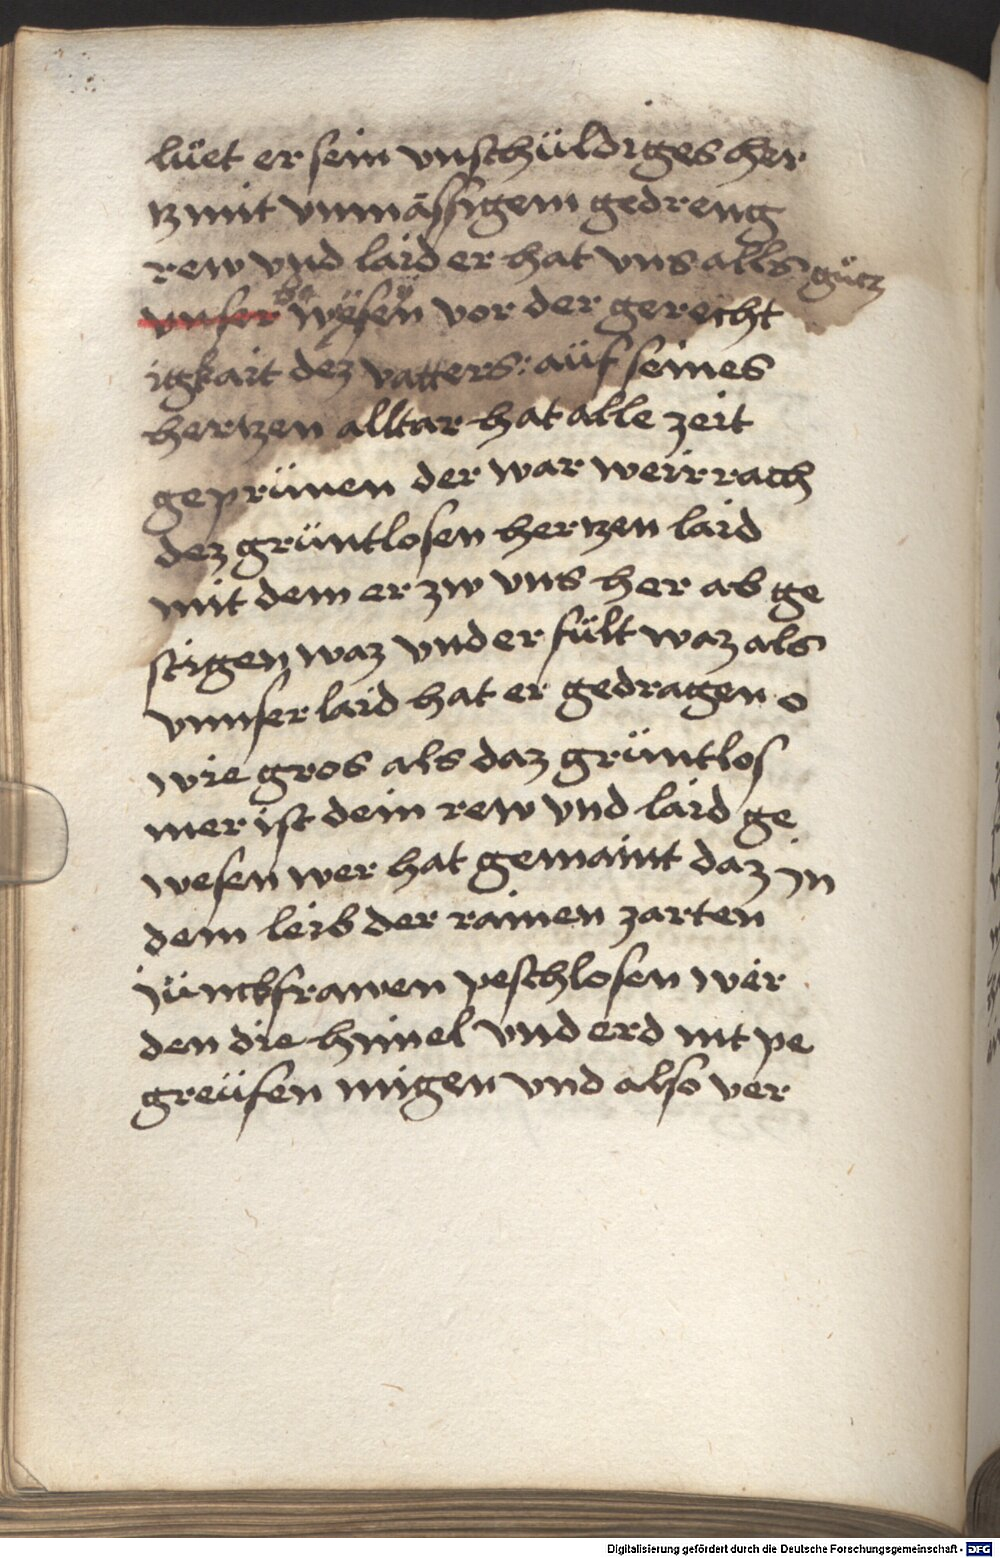 lüet er sein vnschüldiges her
tz mit vnmässigem gedreng
rew vnd laid er hat vns alls gütz
vnser wesen vor der gerecht
itgkait dez vatters: aüf seines
hertzen alltar hat alle zeit
geprünen der war weirrach
dez grüntlosen hertzen laid
mit dem er zw vns her ab ge
stigen waz vnd er fült waz als
vnnser laid hat er gedragen o
wie gros als daz grüntlos
mer ist dein rew vnd laid ge
wesen wer hat gemaint daz jn
dem leib der rainen zarten
jünckfrawen peschlosen wer
den die himel vnd erd nit pe
greüfen migen vnd also ver
Digitalisierung gefördert durch die Deutsche Forschungsgemeinschaft - DFG